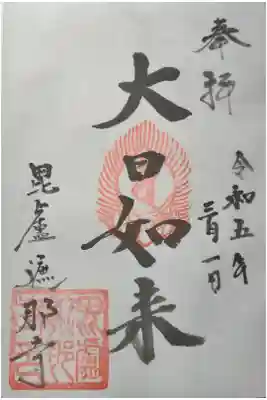 奉拝
令和五年
二月一日
大日如来
毘盧遮那寺